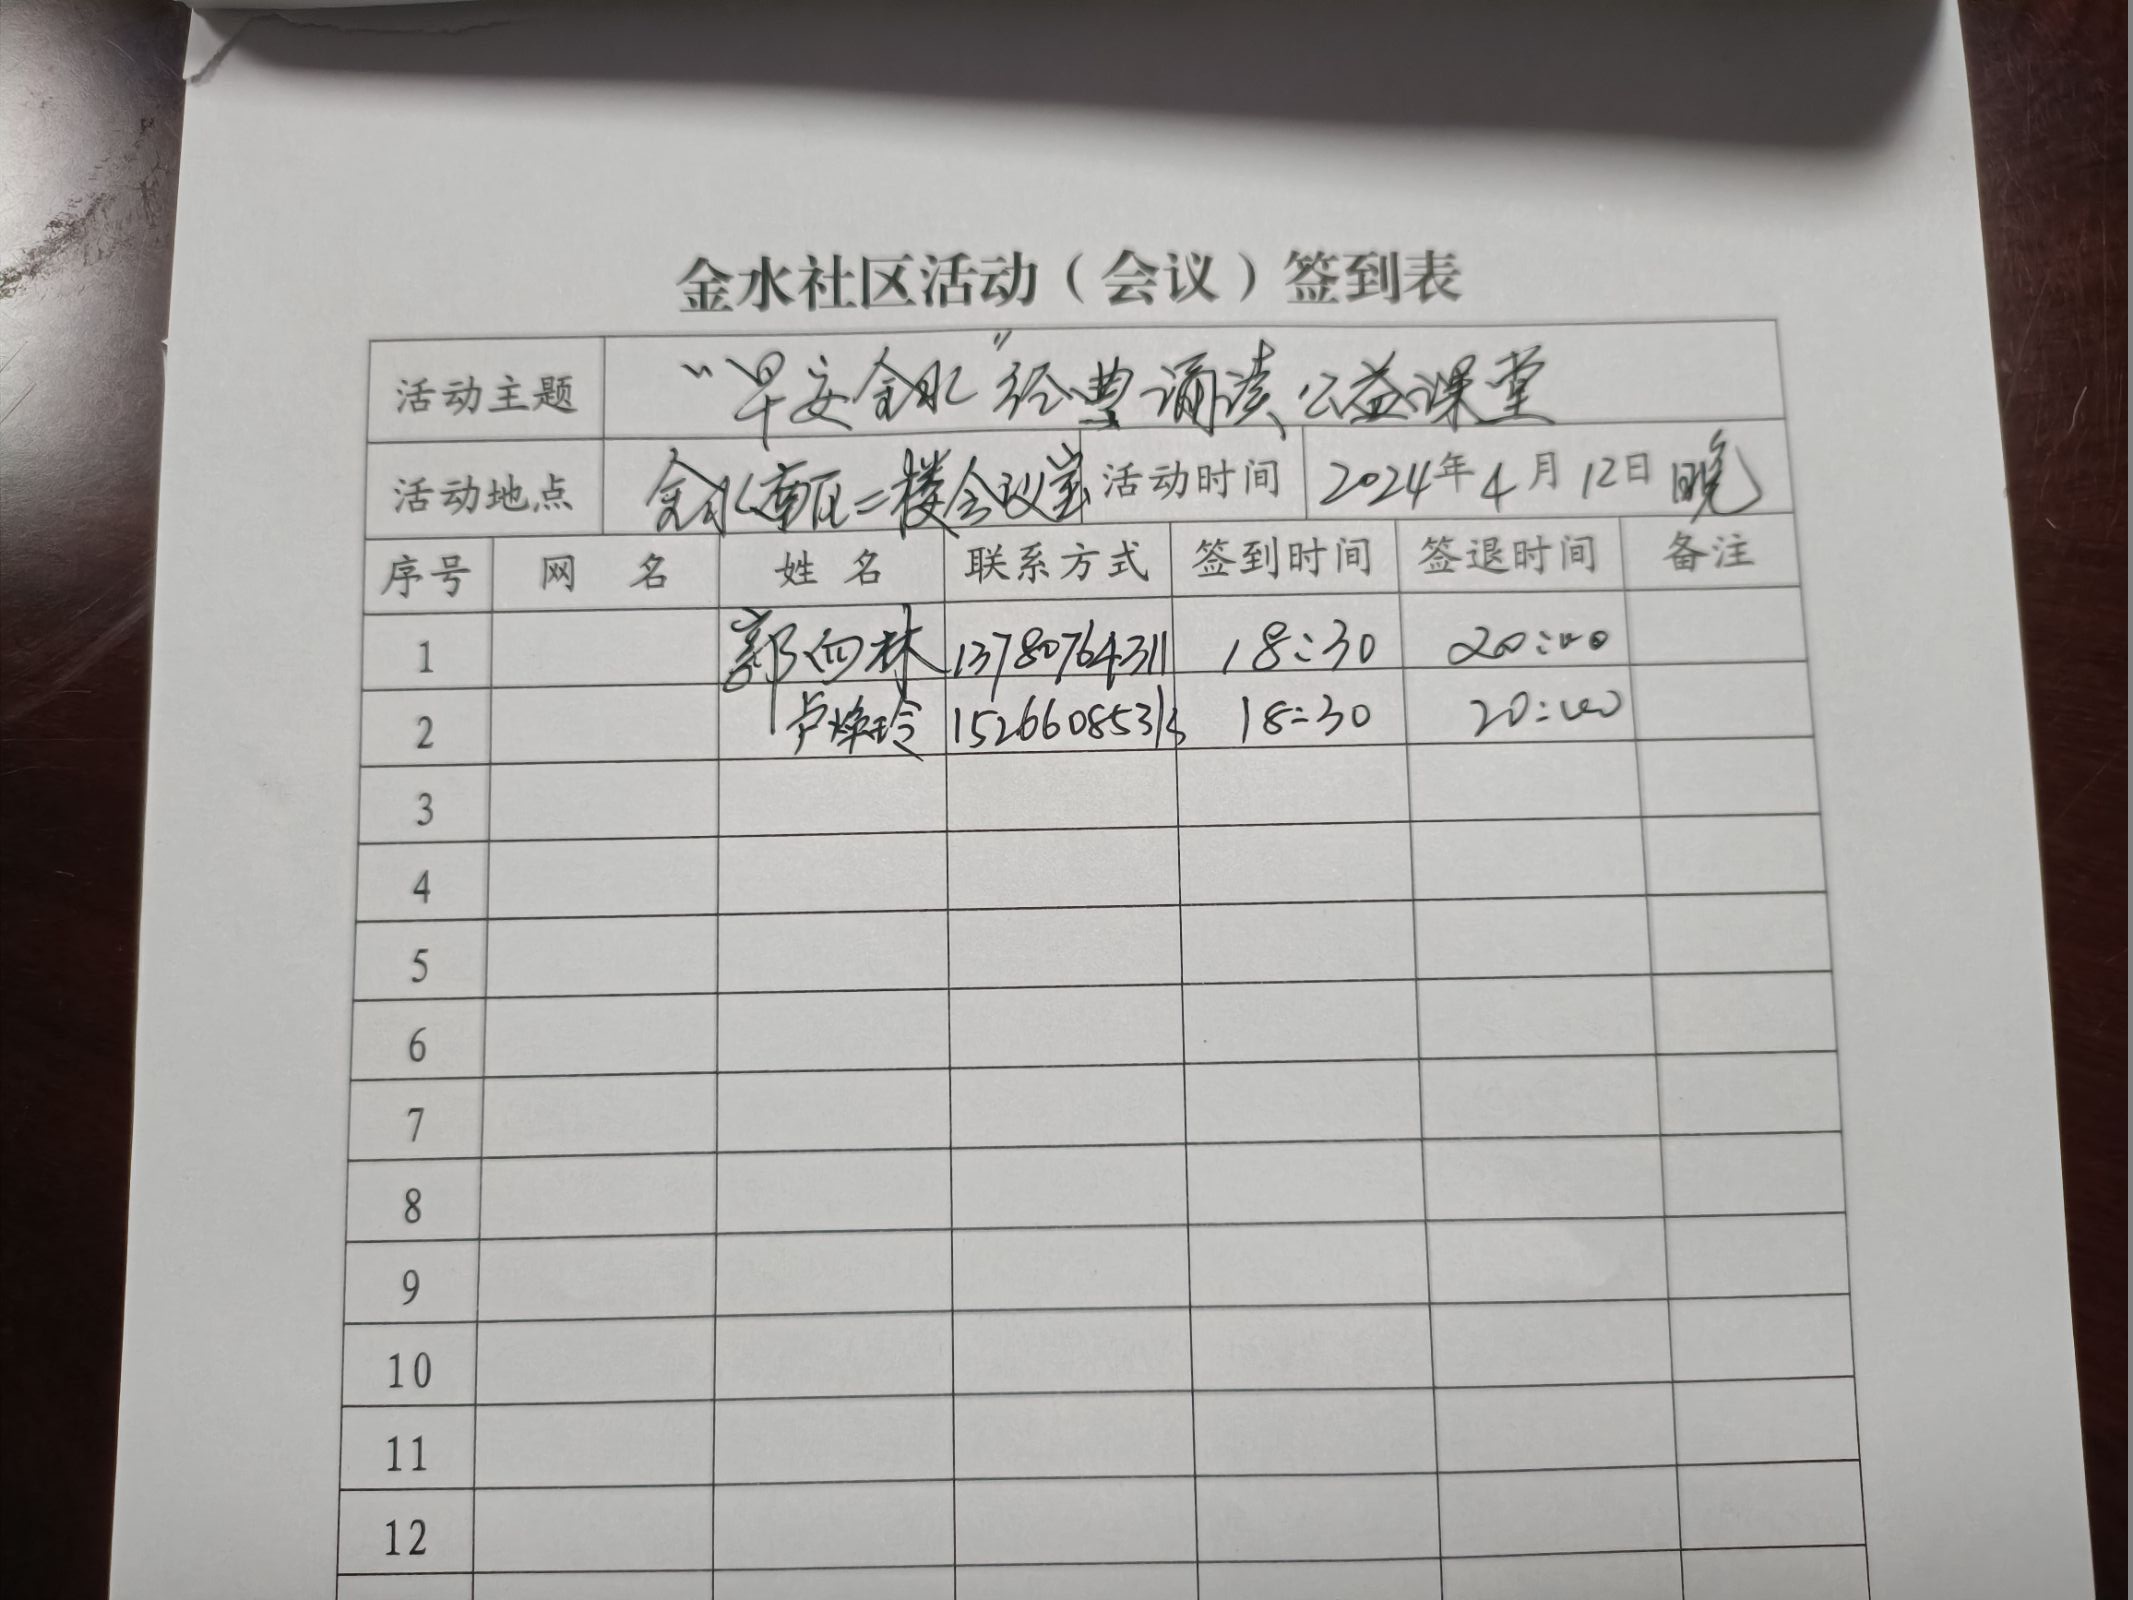 金水社区活动（会议）签到表
活动主题 “早安金水”经典诵读公益课堂
活动地点 金水南区二楼会议室 活动时间 2024年4月12日晚
序号 网 名 姓 名 联系方式 签到时间 签退时间 备注
1 郭向林 13780764311 18:30 20:00
2 卢 玲 18:30 20:00
3
4
5
6
7
8
9
10
11
12